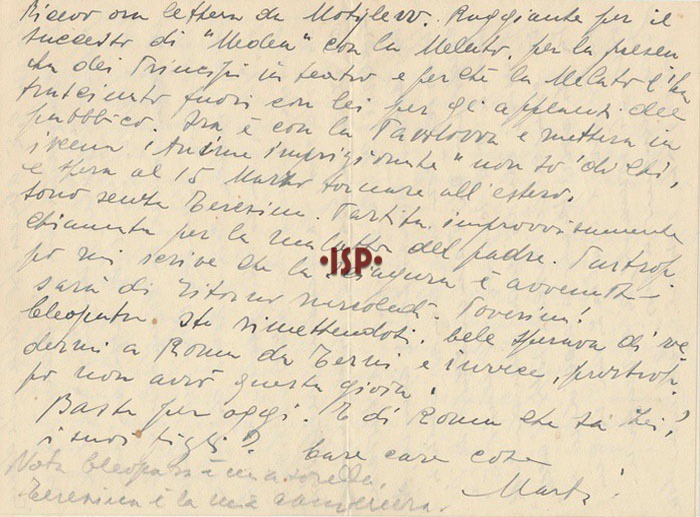 Ricevo ora lettera da Motylew. Raggiante per il
successo di "Medea" con la Melato, per la presen
za dei Principi in teatro e perchè la Melato l'ha
trascinato fuori con lei per gli applausi del
pubblico. Ora è con la Pavlova e metterà in
iscena "Anime imprigionate" non so di chi,
e spera al 15 Marzo tornare all'estero.
sono senza Teresina. Partita improvvisamente
chiamata per la malattia del padre. Purtrop
po mi scrive che la sciagura è avvenuta
sarà di ritorno mercoledì. Poverina!
Cleopatra sta rimettendosi, bele sperava di ve
dermi a Roma da Terni e invece, purtrop
po non avrò questa gioia!
Basta per oggi. E di Roma che sa Lei?
i suoi figli? Care care cose
Marta
Nota Cleopatra è mia sorella,
Teresina è la mia cameriera.
·ISP·